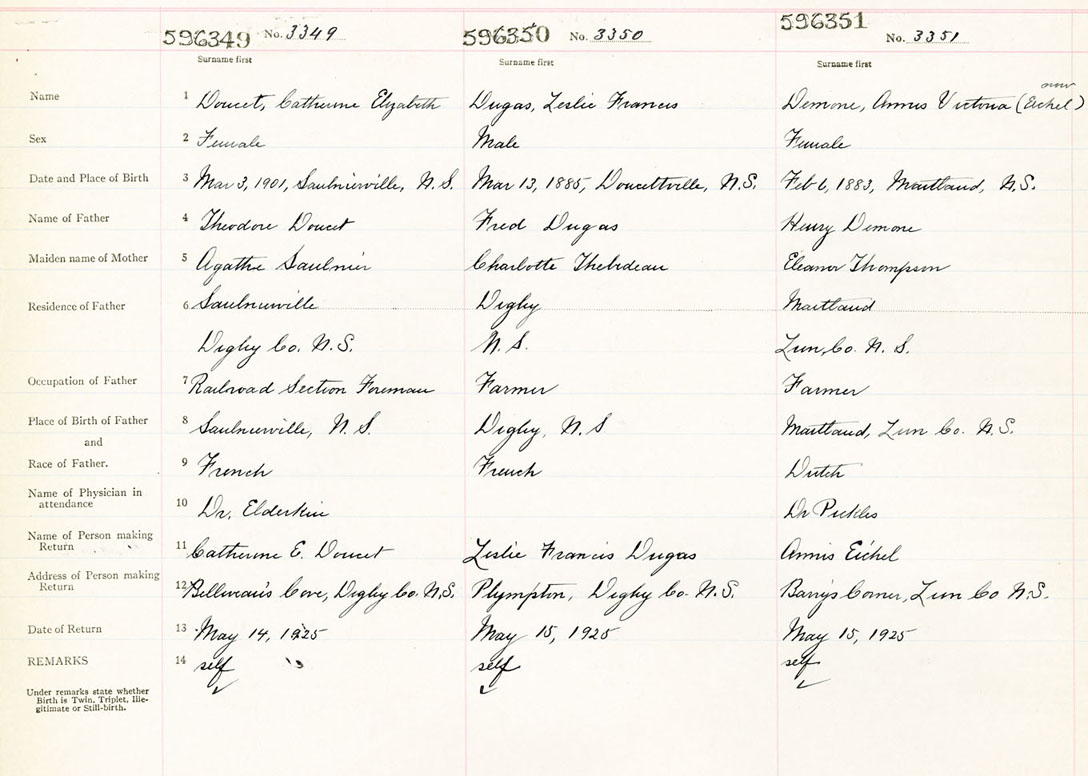 596349 No. 3349 596350 No. 3350 596351 No. 3351
Surname first Surname first Surname first
now
Name 1 Doucet, Catherine Elizabeth Dugas, Leslie Francis Demone, Annis Victoria (Eichel)
Sex 2 Female Male Female
Date and Place of Birth 3 Mar 3, 1901, Saulnierville, N.S. Mar 13, 1885, Doucettville, N.S. Feb 6, 1883, Maitland, N.S.
Name of Father 4 Theodore Doucet Fred Dugas Henry Demone
Maiden name of Mother 5 Agathe Saulnier Charlotte Thebideau Eleanor Thompson
Residence of Father 6 Saulnierville Digby Maitland
Digby Co. N.S. N.S. Lun. Co. N.S.
Occupation of Father 7 Railroad Section Foreman Farmer Farmer
Place of Birth of Father 8 Saulnierville, N.S. Digby, N.S Maitland, Lun Co. N.S.
and
Race of Father. 9 French French Dutch
Name of Physician in
attendance 10 Dr. Elderkin Dr Pickles
Name of Person making
Return 11 Catherine E. Doucet Leslie Francis Dugas Annis Eichel
Address of Person making
Return 12 Belliveau's Cove, Digby Co. N.S. Plympton, Digby Co. N.S. Barry's Corner, Lun Co N.S.
Date of Return 13 May 14, 1925 May 15, 1925 May 15, 1925
REMARKS 14 self self self
Under remarks state whether
Birth is Twin, Triplet, Ille-
gitimate or Still-birth.